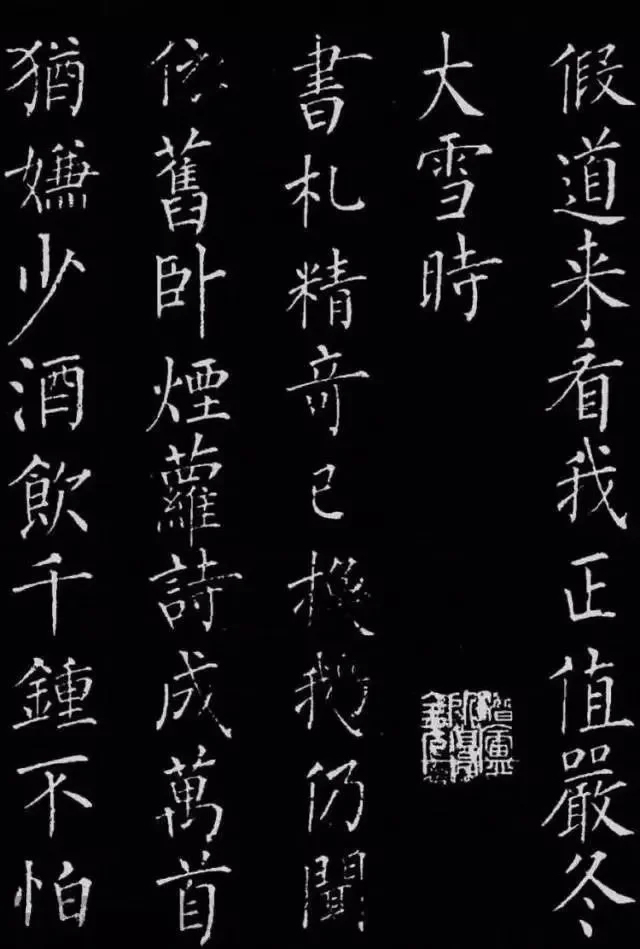 假道来看我正值嚴冬
大雪時
書札精奇已換鵝仍聞
依舊卧煙蘿詩成萬首
猶嫌少酒飲千鍾不怕